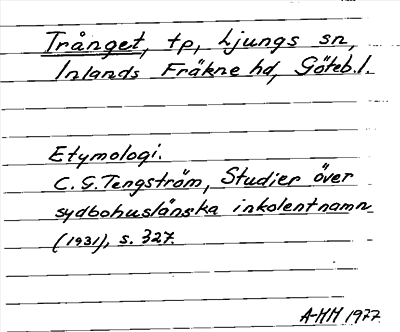 Trånget, tp, Ljungs sn,
Inlands Fräkne hd, Göteb. l.
Etymologi.
C. G. Tengström, Studier över
sydbohuslänska inkolentnamn
(1931), s. 327.
A-MH 1977